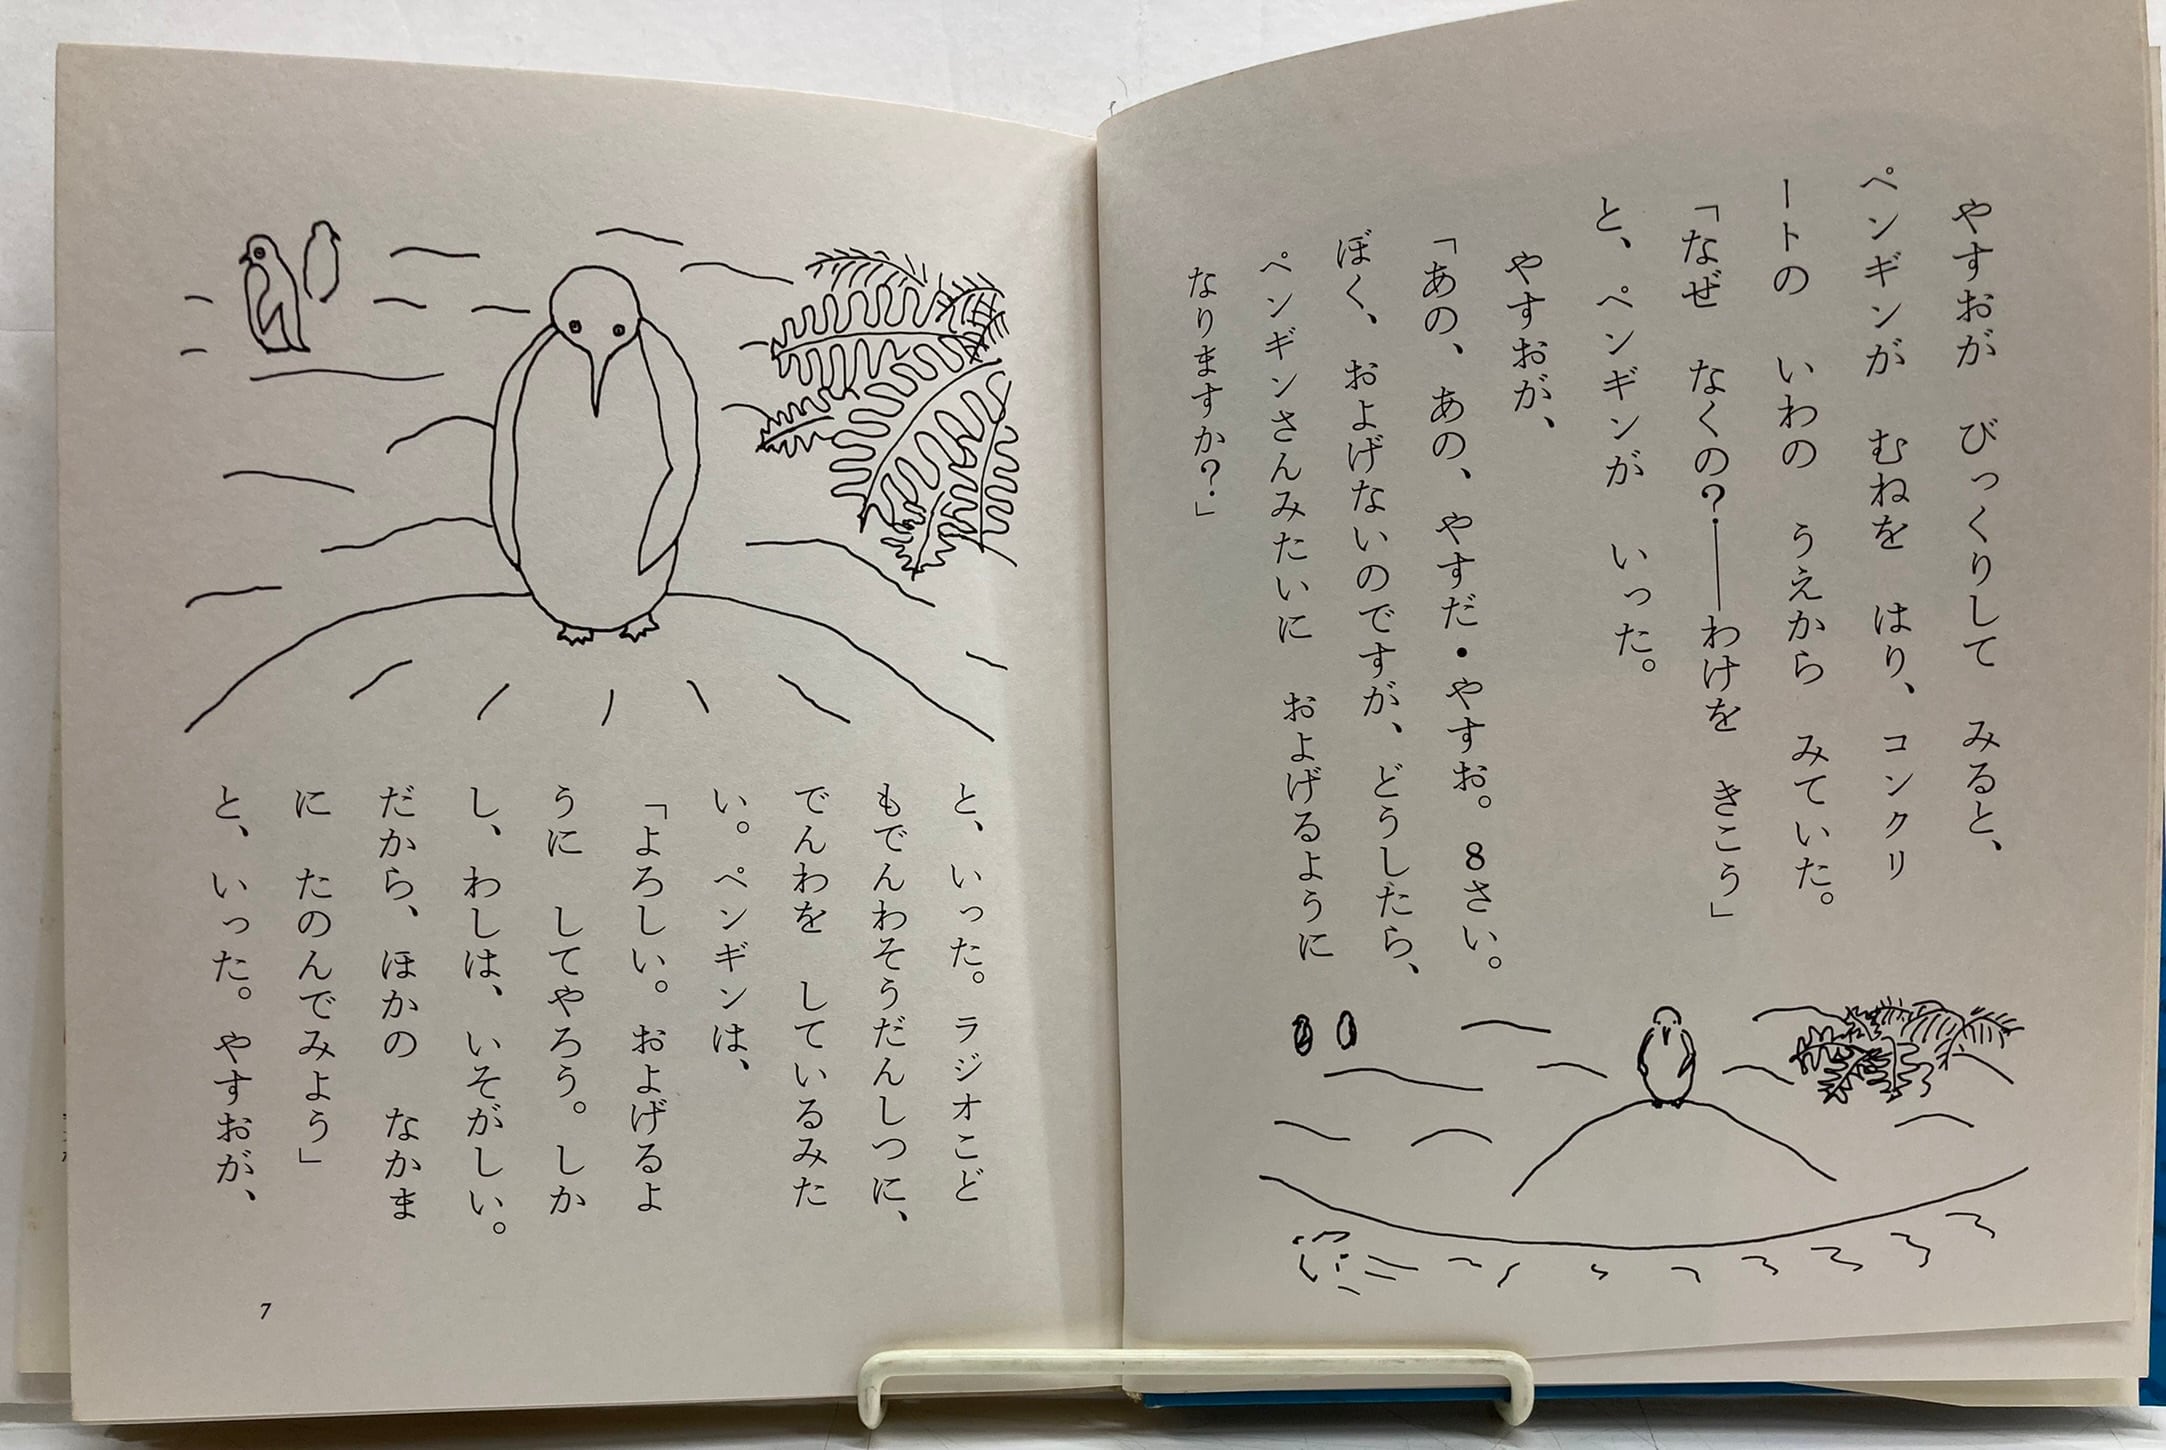 やすおが　びっくりして　みると、
ペンギンが　むねを　はり、コンクリ
ートの　いわの　うえから　みていた。
「なぜ　なくの？――わけを　きこう」
と、ペンギンが　いった。
やすおが、
「あの、あの、やすだ・やすお。8さい。
ぼく、およげないのですが、どうしたら、
ペンギンさんみたいに　およげるように
なりますか？」
と、いった。ラジオこど
もでんわそうだんしつに、
でんわを　しているみた
い。ペンギンは、
「よろしい。およげるよ
うに　してやろう。しか
し、わしは、いそがしい。
だから、ほかの　なかま
に　たのんでみよう」
と、いった。やすおが、
7